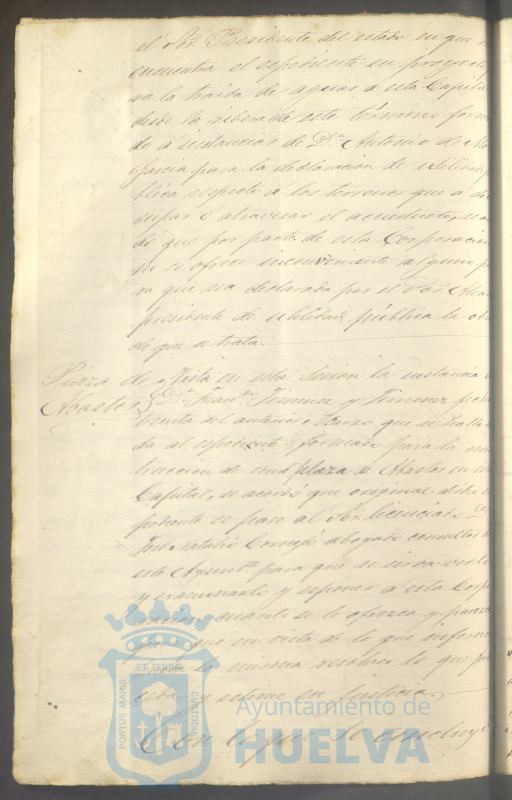 el Sor. Presidente del estado en que se
encuentra el espediente en proyecto
para la traida de aguas á esta Capital
desde la ribera de este término forma
do á instancias de Dn. Antonio de
Garcia para la declaracion de utilidad pú
blica respecto á los terrenos que á de o
cupar ó atravesar el acueducto,
dó que por parte de esta Corporacion
no se ofrece inconveniente alguno pa
ra que sea declarada por el Sor. Alcalde
presidente de utilidad pública la obra
de que se trata.
Plaza de Abastos
Vista en esta sesion la instancia de
Dn. Juan Jimenez y Jimenez fecha
treinta del anterior Marzo que se halla
da al espediente formado para la cons
truccion de una plaza de Abastos en esta
Capital, se acordó que original dicho es
pediente se pase al Sor. licenciado Dn.
José Natalio Cornejo abogado consultor de
este Ayuntº. para que se sirva verlo
y examinarlo y esponer á esta Corpo
racion cuanto se le ofrezca y parezca
para que en vista de lo que informe
la misma resolver lo que pro
ceda y estime en Justicia,
Con lo que se concluyó
PORTUS MARIS
ET TERRE
CUSTODIA
Ayuntamiento de
HUELVA